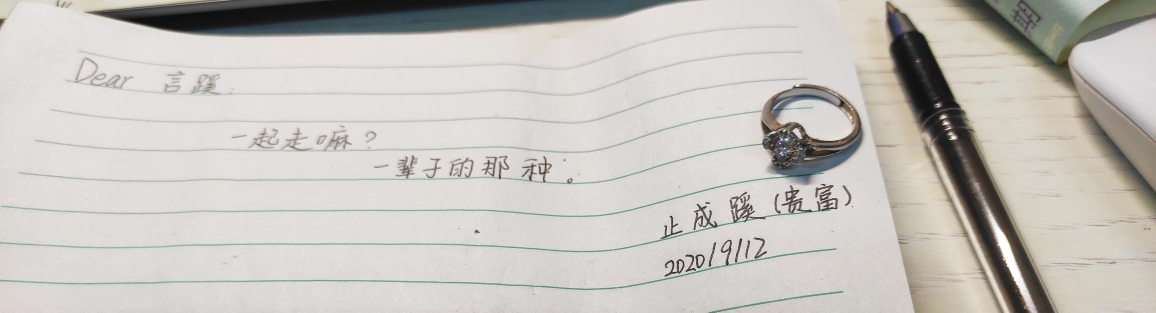 Dear 言蹊:
一起走嘛?
一辈子的那种。
止成蹊(贵富)
2020/9/12